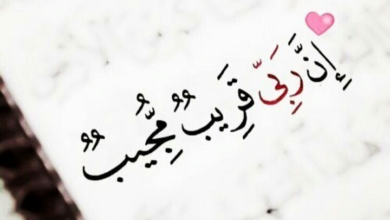 إِنَّ رَبِّىِّ قَرِيبٌ مُجِّيبٌ